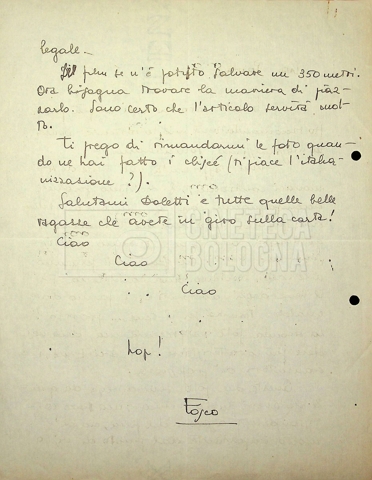 legale -
Del film se n'è potuto salvare un 350 metri.
Ora bisogna trovare la maniera di piaz-
zarlo. Sono certo che l'articolo servirà mol-
to.
Ti prego di rimandarmi le foto quan-
do ne hai fatto i cliscé (ti piace l'italia-
nizzazione?).
Salutami Doletti e tutte quelle belle
ragazze che avete in giro sulla carta!
Ciao
Ciao
Ciao
hop!
Fosco
CINETECA
BOLOGNA